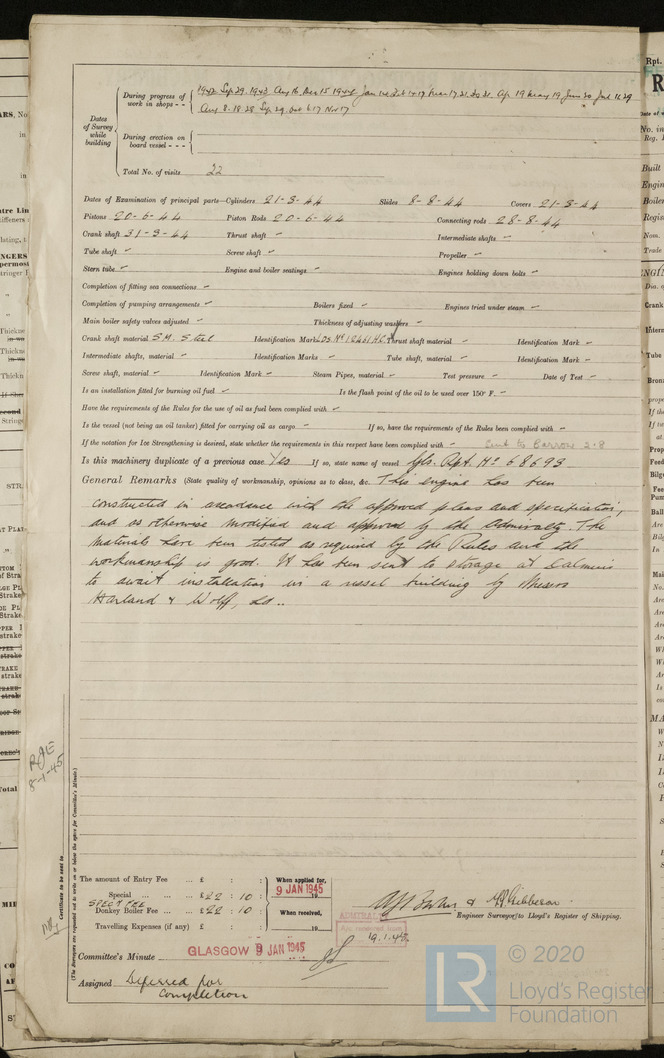 During progress of work in shops - - 1942 Sep 29. 1943 Aug 16. Dec 15 1944 Jan 12 Feb 14.17 Mar 17.21.30.31. Apr 19 May 19 Jun 20
Aug 8.18.28 Sep 29. Oct 6.17 Nov 17
Dates of Survey while building
During erection on board vessel - - -
Total No. of visits 22
Dates of Examination of principal parts—Cylinders 21-3-44 Slides 8-8-44 Covers 21-3-44
Pistons 20-6-44 Piston Rods 20-6-44 Connecting rods 28-8-44
Crank shaft 31-3-44 Thrust shaft - Intermediate shafts -
Tube shaft - Screw shaft - Propeller -
Stern tube - Engine and boiler seatings - Engines holding down bolts -
Completion of fitting sea connections -
Completion of pumping arrangements - Boilers fixed - Engines tried under steam -
Main boiler safety valves adjusted - Thickness of adjusting washers -
Crank shaft material S.M. Steel Identification Mark Thrust shaft material - Identification Mark -
Intermediate shafts, material - Identification Marks - Tube shaft, material - Identification Mark -
Screw shaft, material - Identification Mark - Steam Pipes, material - Test pressure - Date of Test -
Is an installation fitted for burning oil fuel - Is the flash point of the oil to be used over 150° F. -
Have the requirements of the Rules for the use of oil as fuel been complied with -
Is the vessel (not being an oil tanker) fitted for carrying oil as cargo - If so, have the requirements of the Rules been complied with -
If the notation for Ice Strengthening is desired, state whether the requirements in this respect have been complied with - Sent to Barrow 2.8
Is this machinery duplicate of a previous case Yes If so, state name of vessel Gls. Rpt. No 68693
General Remarks (State quality of workmanship, opinions as to class, &c. This engine has been
constructed in accordance with the approved plans and specification,
and as otherwise modified and approved by the Admiralty. The
materials have been tested as required by the Rules and the
workmanship is good. It has been sent to storage at Dalmuir
to await installation in a vessel building by Messrs
Harland & Wolff, Ld..
RJE
8-1-45
Certificate to be sent to
(The Surveyors are requested not to write on or below the space for Committee's Minute.)
The amount of Entry Fee ... £ : :
When applied for,
9 JAN 1945
Special ... ... ... £22 : 10 :
SPECN FEE
Donkey Boiler Fee ... ... £22 : 10 :
When received,
Travelling Expenses (if any) £ : : 19
Engineer Surveyors to Lloyd's Register of Shipping.
19.1.45
Committee's Minute GLASGOW 9 JAN 1945
Assigned Deferred for
completion
LR
© 2020
Lloyd's Register
Foundation